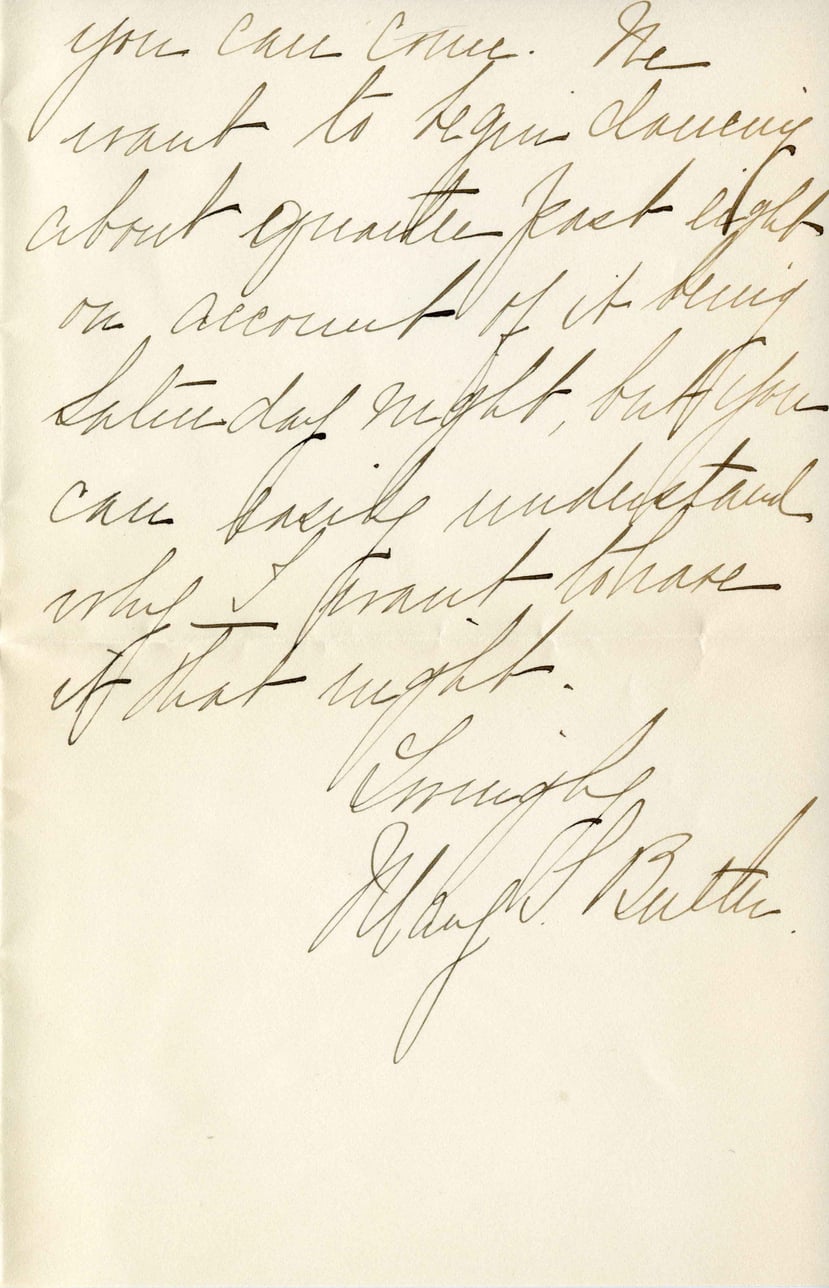 you can come. We
want to begin dancing
about quarter past eight
on account of it being
Saturday night, but you
can easily understand
why I want to have
it that night.
Lovingly
Mary S. Butler.